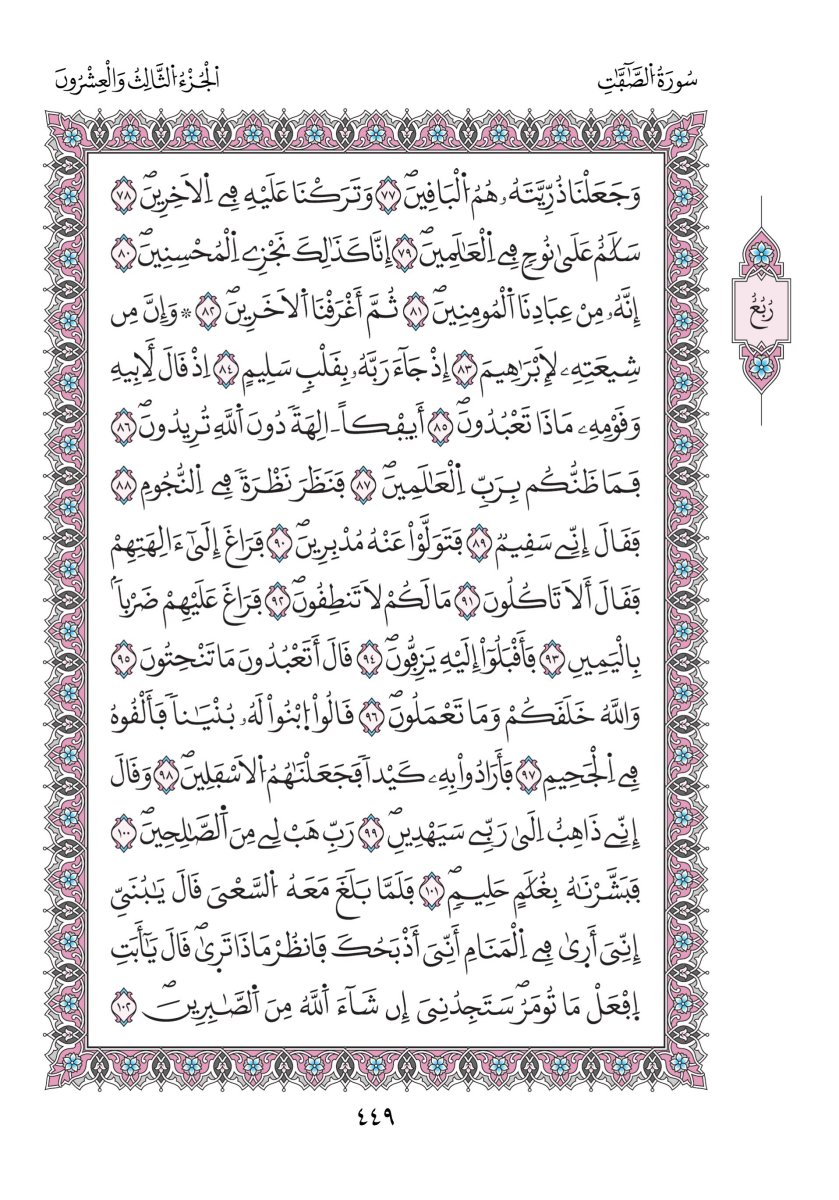 سُورَةُ اُ۬لصَّٰٓفَّٰتِ
اَ۬لْجُزْءُ اُ۬لثَّالِثُ وَالْعِشْرُونَ
وَجَعَلْنَا ذُرِّيَّتَهُۥ هُمُ اُ۬لْبَاقِينَۖ ٧٧ وَتَرَكْنَا عَلَيْهِ فِے اِ۬لَاخِرِينَۖ ٧٨
سَلَٰمٌ عَلَىٰ نُوحٖ فِے اِ۬لْعَٰلَمِينَۖ ٧٩ إِنَّا كَذَٰلِكَ نَجْزِے اِ۬لْمُحْسِنِينَۖ ٨٠
إِنَّهُۥ مِنْ عِبَادِنَا اَ۬لْمُومِنِينَۖ ٨١ ثُمَّ أَغْرَقْنَا اَ۬لَاخَرِينَۖ ٨٢ ۞ وَإِنَّ مِن
شِيعَتِهِۦ لِإِبْرَٰهِيمَ ٨٣ إِذْ جَآءَ رَبَّهُۥ بِقَلْبٖ سَلِيمٍ ٨٤ اِذْ قَالَ لِأَبِيهِ
وَقَوْمِهِۦ مَاذَا تَعْبُدُونَۖ ٨٥ أَئِفْكاً اٰلِهَةٗ دُونَ اَ۬للَّهِ تُرِيدُونَۖ ٨٦
فَمَا ظَنُّكُم بِرَبِّ اِ۬لْعَٰلَمِينَۖ ٨٧ فَنَظَرَ نَظْرَةٗ فِے اِ۬لنُّجُومِ ٨٨
فَقَالَ إِنِّے سَقِيمٞ ٨٩ فَتَوَلَّوْاْ عَنْهُ مُدْبِرِينَۖ ٩٠ فَرَاغَ إِلَىٰٓ ءَالِهَتِهِمْ
فَقَالَ أَلَا تَاكُلُونَ ٩١ مَا لَكُمْ لَا تَنطِقُونَۖ ٩٢ فَرَاغَ عَلَيْهِمْ ضَرْباَۢ
بِالْيَمِينِ ٩٣ فَأَقْبَلُوٓاْ إِلَيْهِ يَزِفُّونَۖ ٩٤ قَالَ أَتَعْبُدُونَ مَا تَنْحِتُونَ ٩٥
وَاللَّهُ خَلَقَكُمْ وَمَا تَعْمَلُونَۖ ٩٦ قَالُواْ اُ۪بْنُواْ لَهُۥ بُنْيَٰناٗ فَأَلْقُوهُ
فِے اِ۬لْجَحِيمِ ٩٧ فَأَرَادُواْ بِهِۦ كَيْداٗ فَجَعَلْنَٰهُمُ اُ۬لَاسْفَلِينَۖ ٩٨ وَقَالَ
إِنِّے ذَاهِبٌ اِلَىٰ رَبِّے سَيَهْدِينِۖ ٩٩ رَبِّ هَبْ لِے مِنَ اَ۬لصَّٰلِحِينَۖ ١٠٠
فَبَشَّرْنَٰهُ بِغُلَٰمٍ حَلِيمٖۖ ١٠١ فَلَمَّا بَلَغَ مَعَهُ اُ۬لسَّعْىَ قَالَ يَٰبُنَىِّ
إِنِّىَ أَر۪ىٰ فِے اِ۬لْمَنَامِ أَنِّىَ أَذْبَحُكَ فَانظُرْ مَاذَا تَر۪ىٰۖ قَالَ يَٰٓأَبَتِ
اِ۪فْعَلْ مَا تُومَرُۖ سَتَجِدُنِىَ إِن شَآءَ اَ۬للَّهُ مِنَ اَ۬لصَّٰبِرِينَۖ ١٠٢
رُبُعُ
٤٤٩